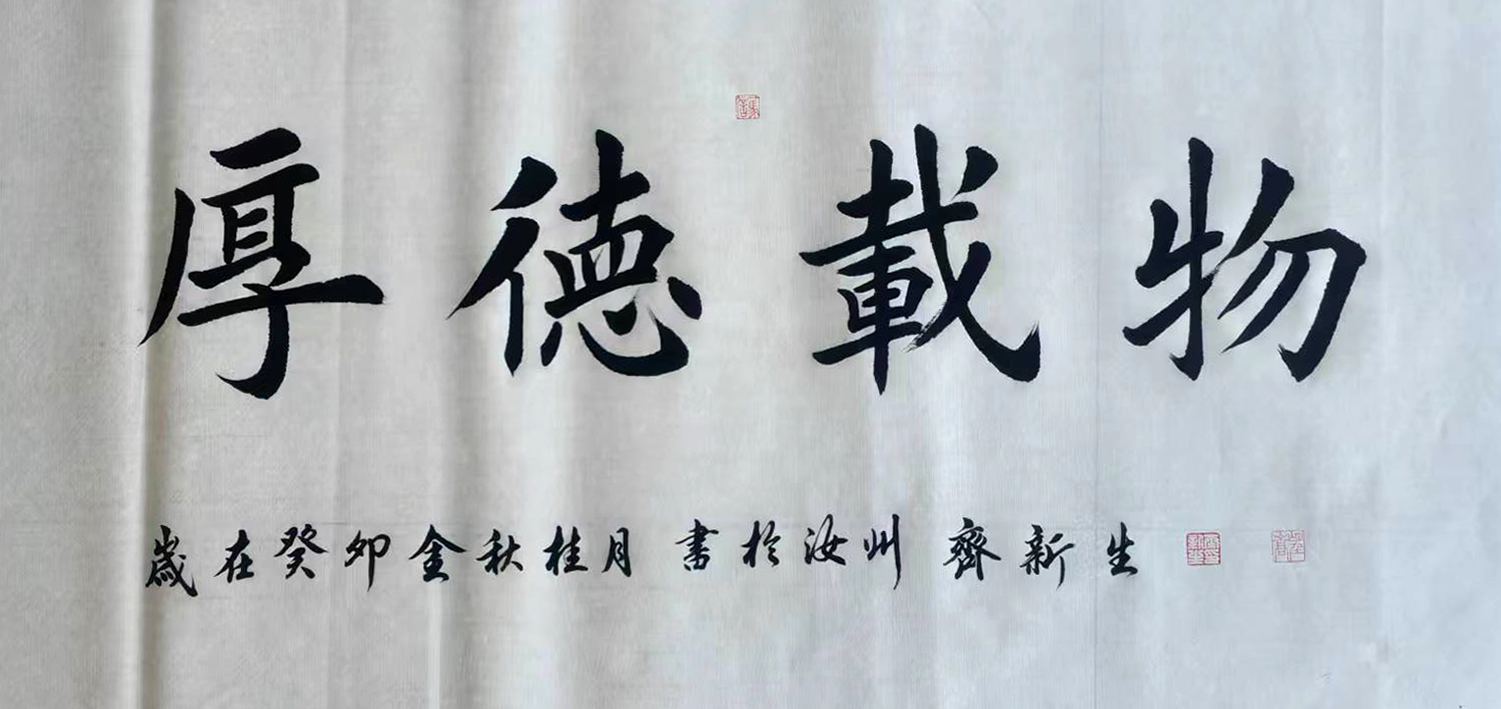 厚德載物
歲在癸卯金秋桂月 書於汝州 齊新生